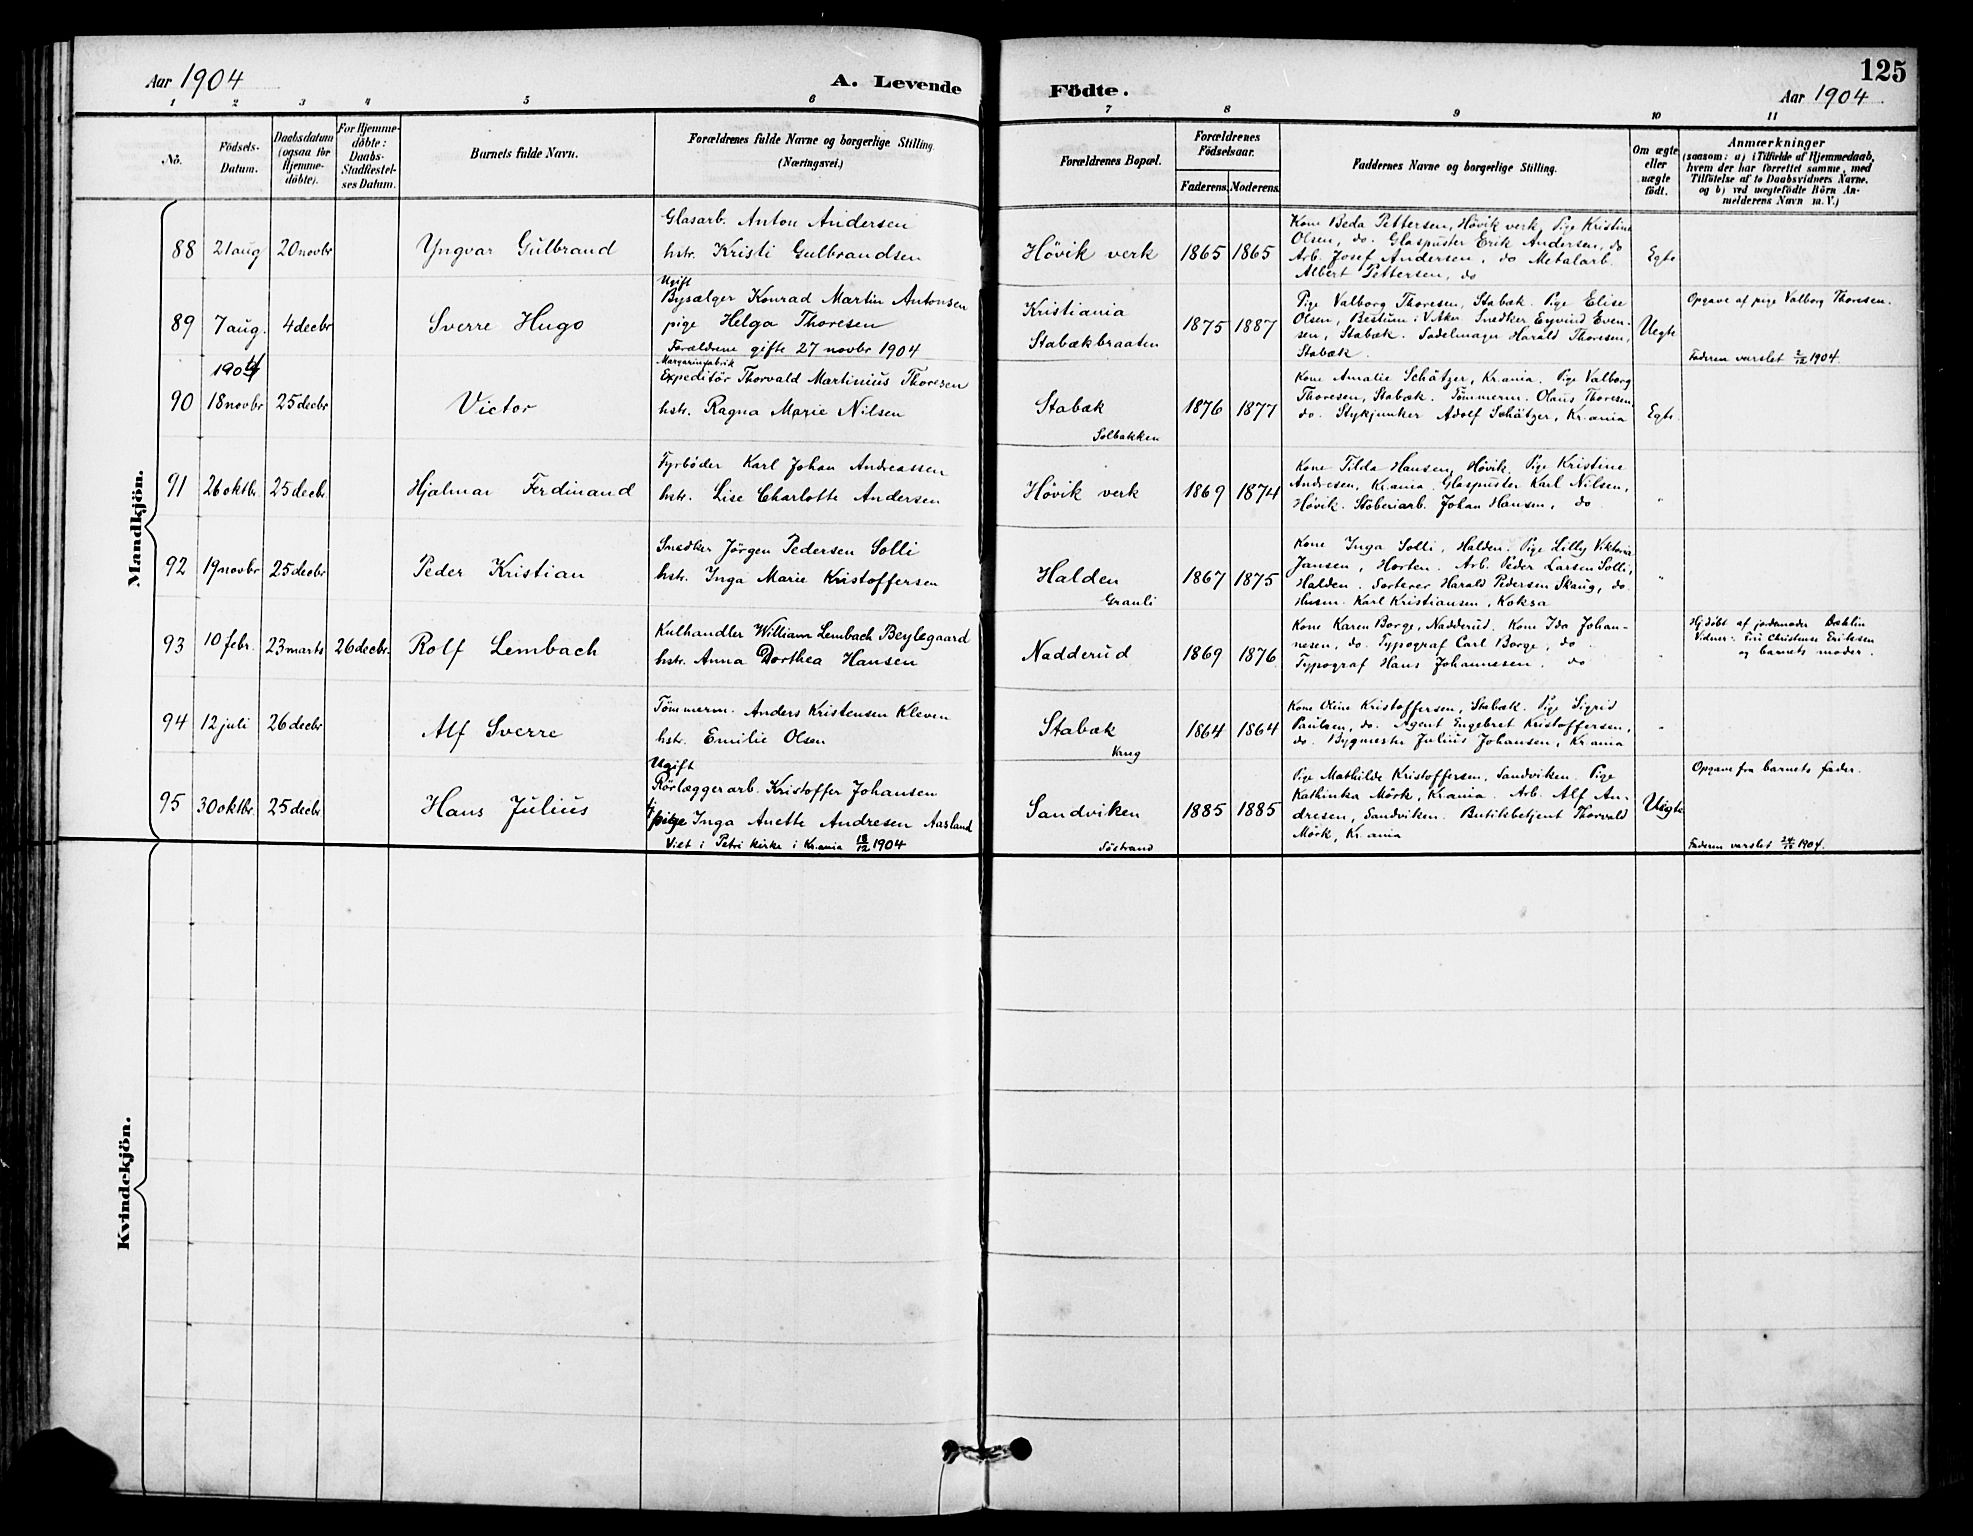 Aar 1904
A. Levende
Födte.
125
Aar 1904
1 2 3 4 5 6 7 8 9 10 11
No.
Födsels-
Datum.
Daabsdatum
(ogsaa for
Hjemme-
döbte).
For Hjemme-
döbte:
Daabs-
Stadfæstel-
ses Datum.
Barnets fulde Navn.
Forældrenes fulde Navne og borgerlige Stilling.
(Næringsvei.)
Forældrenes Bopæl.
Forældrenes
Födselsaar.
Faderens. Moderens.
Faddernes Navne og borgerlige Stilling.
Om ægte
eller
uægte
födt.
Anmærkninger
(saasom: a) i Tilfælde af Hjemmedaab,
hvem der har forrettet samme, med
Tilföielse af to Daabsvidners Navne.
og b) ved uægtefödte Börn An-
melderens Navn m. V.)
Mandkjön.
88 21 aug 20 novbr
Yngvar Gulbrand
Glasarb. Anton Andersen
hstr. Kristi Gulbrandsen
Hövik verk
1865 1865
Kone Beda Pettersen, Hövik verk, Pige Kristine
Olsen, do. Glaspuster Erik Andersen, do
Arb. Josef Andersen, do Metalarb.
Albert Pettersen, do
Egte
89 7 aug. 4 decbr
Sverre Hugo
Ugift
Bysælger Konrad Martin Antonsen
pige Helga Thoresen
Forældrene gifte 27 novbr 1904
Kristiania
Stabækbraaten
1875 1887
Pige Valborg Thoresen, Stabæk. Pige Elise
Olsen, Bestum i V. Aker Snedker Eyvind Even-
sen, Stabæk. Sadelmager Harald Thoresen,
Stabæk.
Uegte
Opgave af pige Valborg Thoresen.
Faderen varslet 2/12 1904.
1904
90 18 novbr 25 decbr
Victor
Margarinfabrik
Expeditör Thorvald Martinius Thoresen
hstr. Ragna Marie Nilsen
Stabæk
Solbakken
1876 1877
Kone Amalie Schätzer, Kr.ania. Pige Valborg
Thoresen, Stabæk. Tömmerm. Olaus Thoresen,
do. Stykjunker Adolf Schätzer, Kr.ania
Egte.
91 26 oktbr. 25 decbr.
Hjalmar Ferdinand
Fyrböder Karl Johan Andreassen
hstr. Lise Charlotte Andersen
Hövik verk
1869 1874
Kone Tilda Hansen, Hövik. Pige Kristine
Andresen, Kr.ania. Glaspuster Karl Nilsen,
Hövik. Stöberiarb. Johan Hansen, do
"
92 19 novbr 25 decbr
Peder Kristian
Snedker Jörgen Pedersen Solli
hstr. Inga Marie Kristoffersen
Halden
Granli
1867 1875
Kone Inga Solli, Halden. Pige Lilly Viktoria
Jansen, Horten. Arb. Peder Larsen Solli,
Halden. Sorterer Harald Pedersen Skaug, do.
Husm. Karl Kristiansen, Koksa
"
93 10 febr. 23 marts 26 decbr.
Rolf Lembach
Kulhandler William Lembach Beylegaard
hstr. Anna Dorthea Hansen
Nadderud
1869 1876
Kone Karen Borge, Nadderud. Kone Ida Johan-
nesen, do. Typograf Carl Borge, do.
Typograf Hans Johannesen. do
"
Hj.döbt af jordmoder
Vidner: Fru Christense Eriksen
og barnets moder.
94 12 juli 26 decbr
Alf Sverre
Tömmerm. Anders Kristensen Kleven
hstr. Emilie Olsen
Stabæk
1864 1864
Kone Oline Kristoffersen, Stabæk. Pige Sigrid
Paulsen, do. Agent Engebret Kristoffersen,
do. Bygmester Julius Johansen, Kr.ania
"
95 30 oktbr. 25 decbr
Hans Julius
Ugift
Rörlæggerarb. Kristoffer Johansen
pige Inga Anette Andresen Aasland
Viet i Petri kirke i Kr.ania 18/12 1904
Sandviken
Söstrand
1885 1885
Pige Mathilde Kristoffersen, Sandviken. Pige
Kathinka Mörk, Kr.ania. Arb. Alf An-
dresen, Sandviken. Butikbetjent Thorvald
Mörk, Kr.ania
Uegte
Opgave fra barnets fader.
Faderen varslet 24/12 1904.
Kvindekjön.